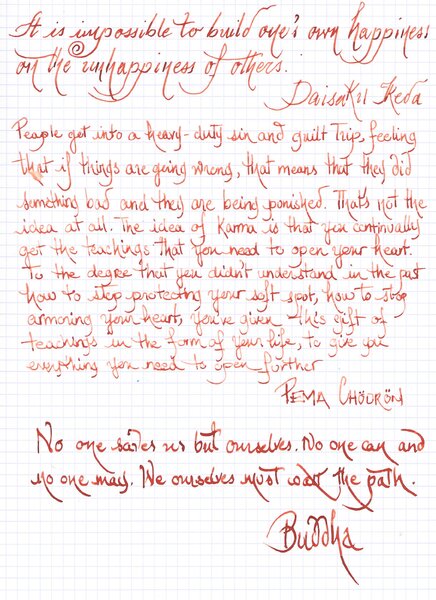 It is impossible to build one's own happiness
on the unhappiness of others.
Daisaku Ikeda
People get into a heavy-duty sin and guilt trip, feeling
that if things are going wrong, that means that they did
something bad and they are being punished. That's not the
idea at all. The idea of Karma is that you continually
get the teachings that you need to open your heart.
To the degree that you didn't understand in the past
how to stop protecting your soft spot, how to stop
armoring your heart, you've given this gift of
teachings in the form of your life, to give you
everything you need to open further
PEMA CHÖDRÖN
No one saves us but ourselves. No one can and
no one may. We ourselves must walk the path.
Buddha